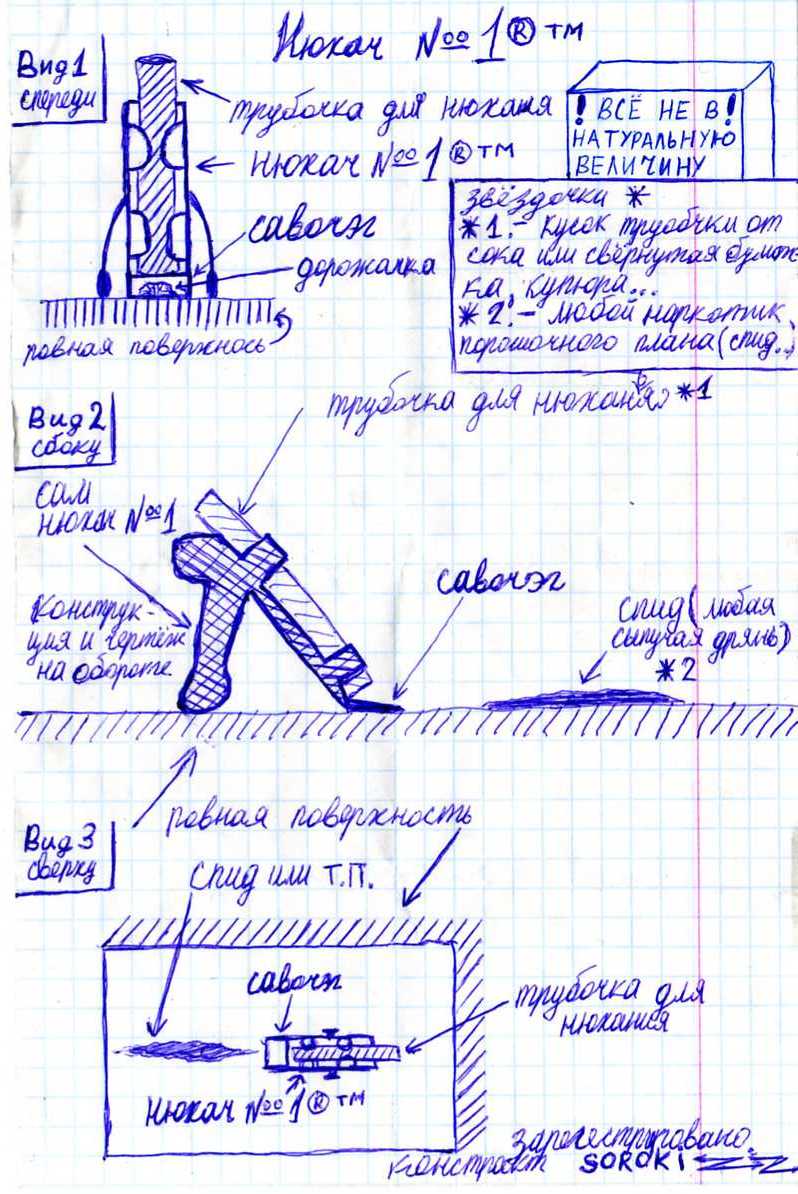 Нюхач №1® ™
Вид 1
спереди
трубочка для нюханя
Нюхач №1® ™
савочэг
дорожалка
ровная поверхнось
! ВСЁ НЕ В !
НАТУРАЛЬНУЮ
ВЕЛИЧИНУ
звёздочки *
*1.- кусок трубочки от
сока или свёрнутая бумаж-
ка, купюра...
*2.- любой наркотик
порошочного плана (спид..)
Вид 2
сбоку
трубочка для нюханя *1
сам
нюхач №1
Конструк-
ция и чертёж
на обороте
савочэг
спид (любая
сыпучая дрянь)
*2
ровная поверхность
Вид 3
сверху
спид или т.п.
савочэг
трубочка для
нюхания
Нюхач №1® ™
зарегестрировано
SOROKi